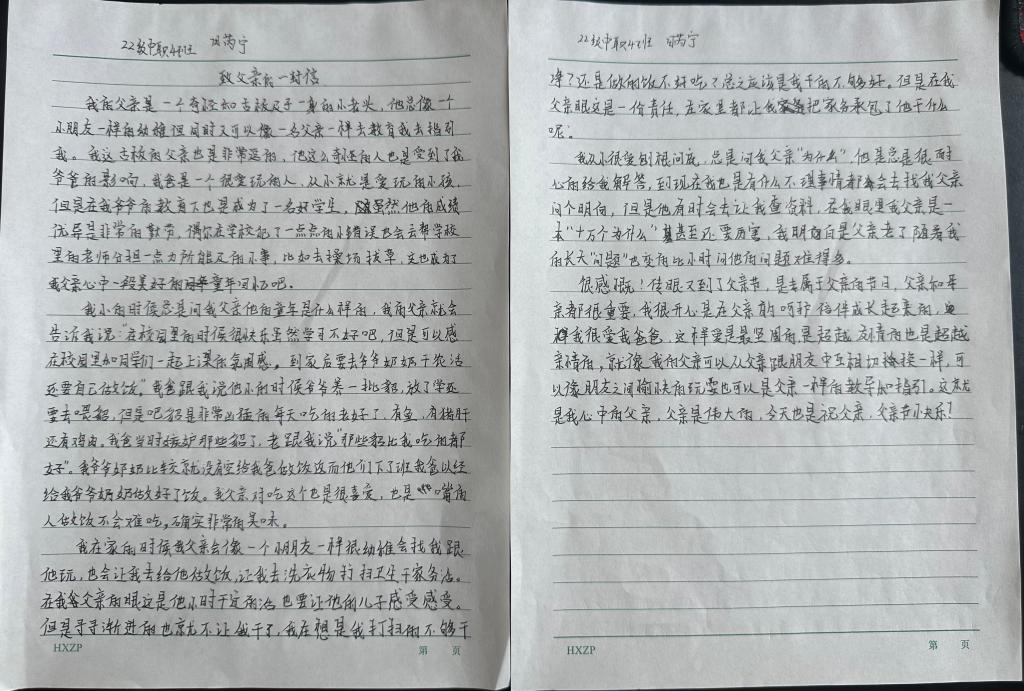 22级中职4班 芮宁
致父亲的一封信
我的父亲是一个奇怪如古板及于一身的小老头，他总像一个
小朋友一样的幼稚但同时又可以像一名父亲一样去教育我去指引
我。我这古板的父亲也是非常逗的，他这么奇怪的人也是受到了我
爷爸的影响，我爸是一个很爱玩的人、从小就是爱玩的小孩，
但是在我爷爷亲教育下也是成为了一名好学生，虽然他的成绩
优异是非常的勤劳，偶尔在学校犯了一点点的小错误也会去帮学校
里的老师分担一点力所能及的小事，比如去操场拔草，这也成为了
我父亲心中一段美好的童年回忆吧。
我小的时候总是问我父亲他的童年是什么样的，我的父亲就会
告诉我说：“在校园里的时候很快乐虽然学习不好吧，但是可以感
在校园里和同学们一起上课的氛围感。到家后要去爷爷奶奶干农活
还要自己做饭”我爸跟我说他小的时候爷爷养一批貂，放了学还
要去喂貂，但是吧貂是非常凶猛的每天吃的老好了，有鱼，有猪肝
还有鸡肉。我爸当时嫉妒那些貂了，老跟我说“那些貂比我吃的都
好”。我爷爷奶奶比较忙就没有空给我爸做饭返而他们下了班我爸以经
给我爷爷奶奶做好了饭。我父亲对吃这个也是很喜爱，也是 嘴的
人做饭不会难吃，确实非常的美味。
我在家的时候我父亲会像一个小朋友一样很幼稚会找我跟
他玩，也会让我去给他做饭，让我去洗衣物打扫卫生干家务活。
在我爸父亲的眼这是他小时干过的活也要让他的儿子感受感受。
但是寻寻渐进的也就不让我干了，我在想是我打扫的不够干
HXZP 第 页
22级中职4班 芮宁
净？还是做的饭不好吃？总之应该是我干的不够好。但是在我
父亲眼这是一份责任，在家里都让我爸把家务承包了他干什么
呢。
我从小很爱刨根问底，总是问我父亲“为什么”，他是总是很耐
心的给我解答，到现在我也是有什么不理事情都会去找我父亲
问个明白，但是他有时会去让我查资料，在我眼里我父亲是一
本“十万个为什么”甚至还要厉害，我明白是父亲老了随着我
的长大“问题”也变的比小时问他的问题难得多。
很感慨！转眼又到了父亲节，是去属于父亲的节日，父亲和母
亲都很重要，我很开心是在父亲的呵护陪伴成长起来的，
我很爱我爸爸，这样爱是最坚固的是超越友情的也是超越
亲情的，就像我的父可以从父亲跟朋友中互相切换一样，可
以像朋友之间愉快的玩耍也可以是父亲一样的教导和指引。这就
是我心中的父亲，父亲是伟大的，今天也是祝父亲，父亲节快乐！
HXZP 第 页